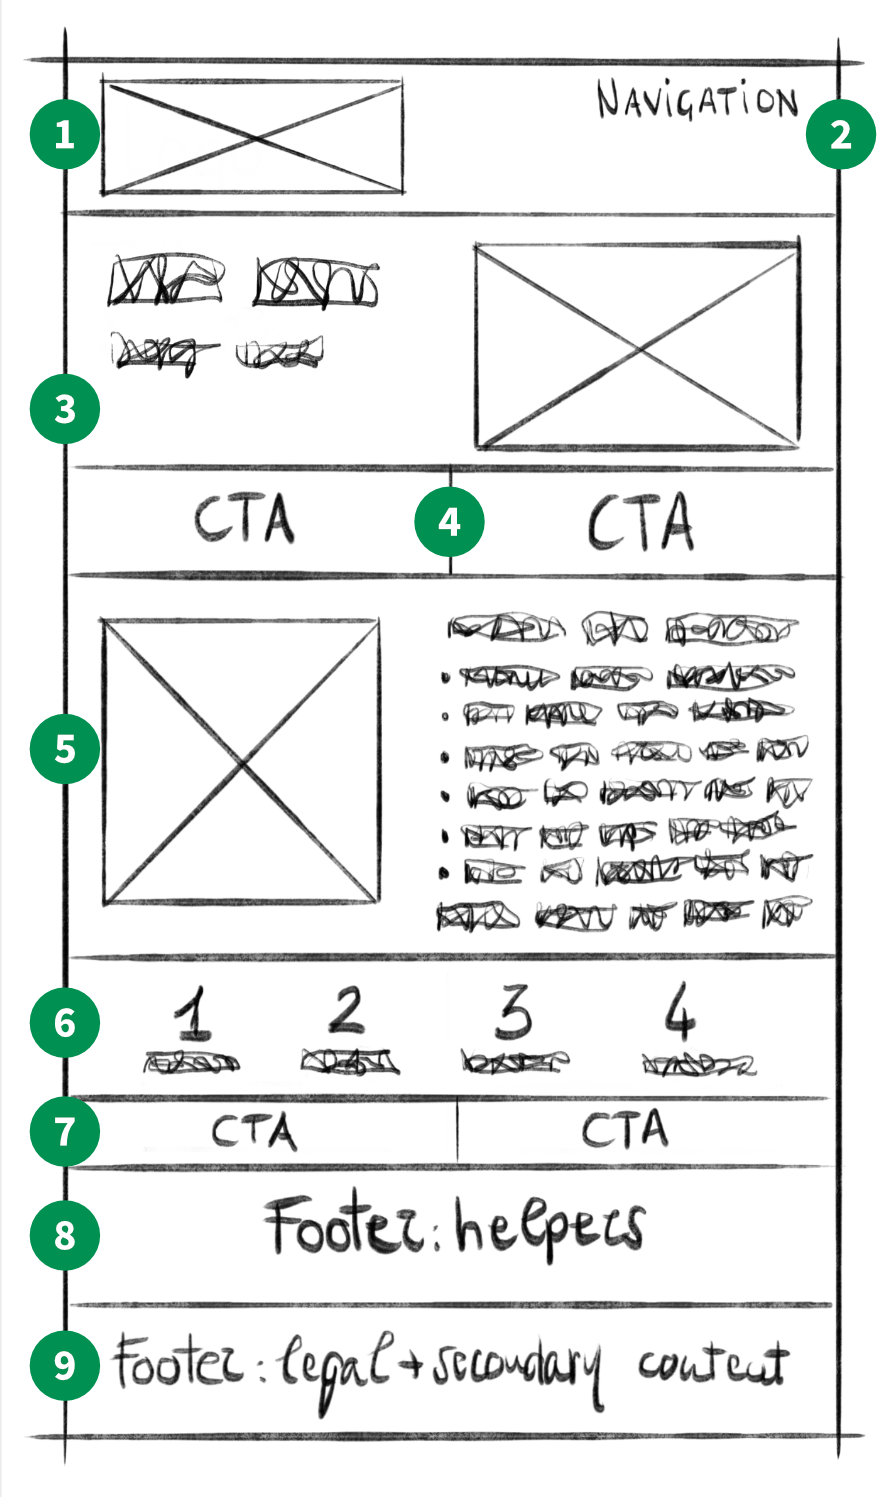 1
NAViGATiON
2
3
CTA
4
CTA
5
6
1
2
3
4
7
CTA
CTA
8
Footer: helpers
9
Footer: legal + secondary content